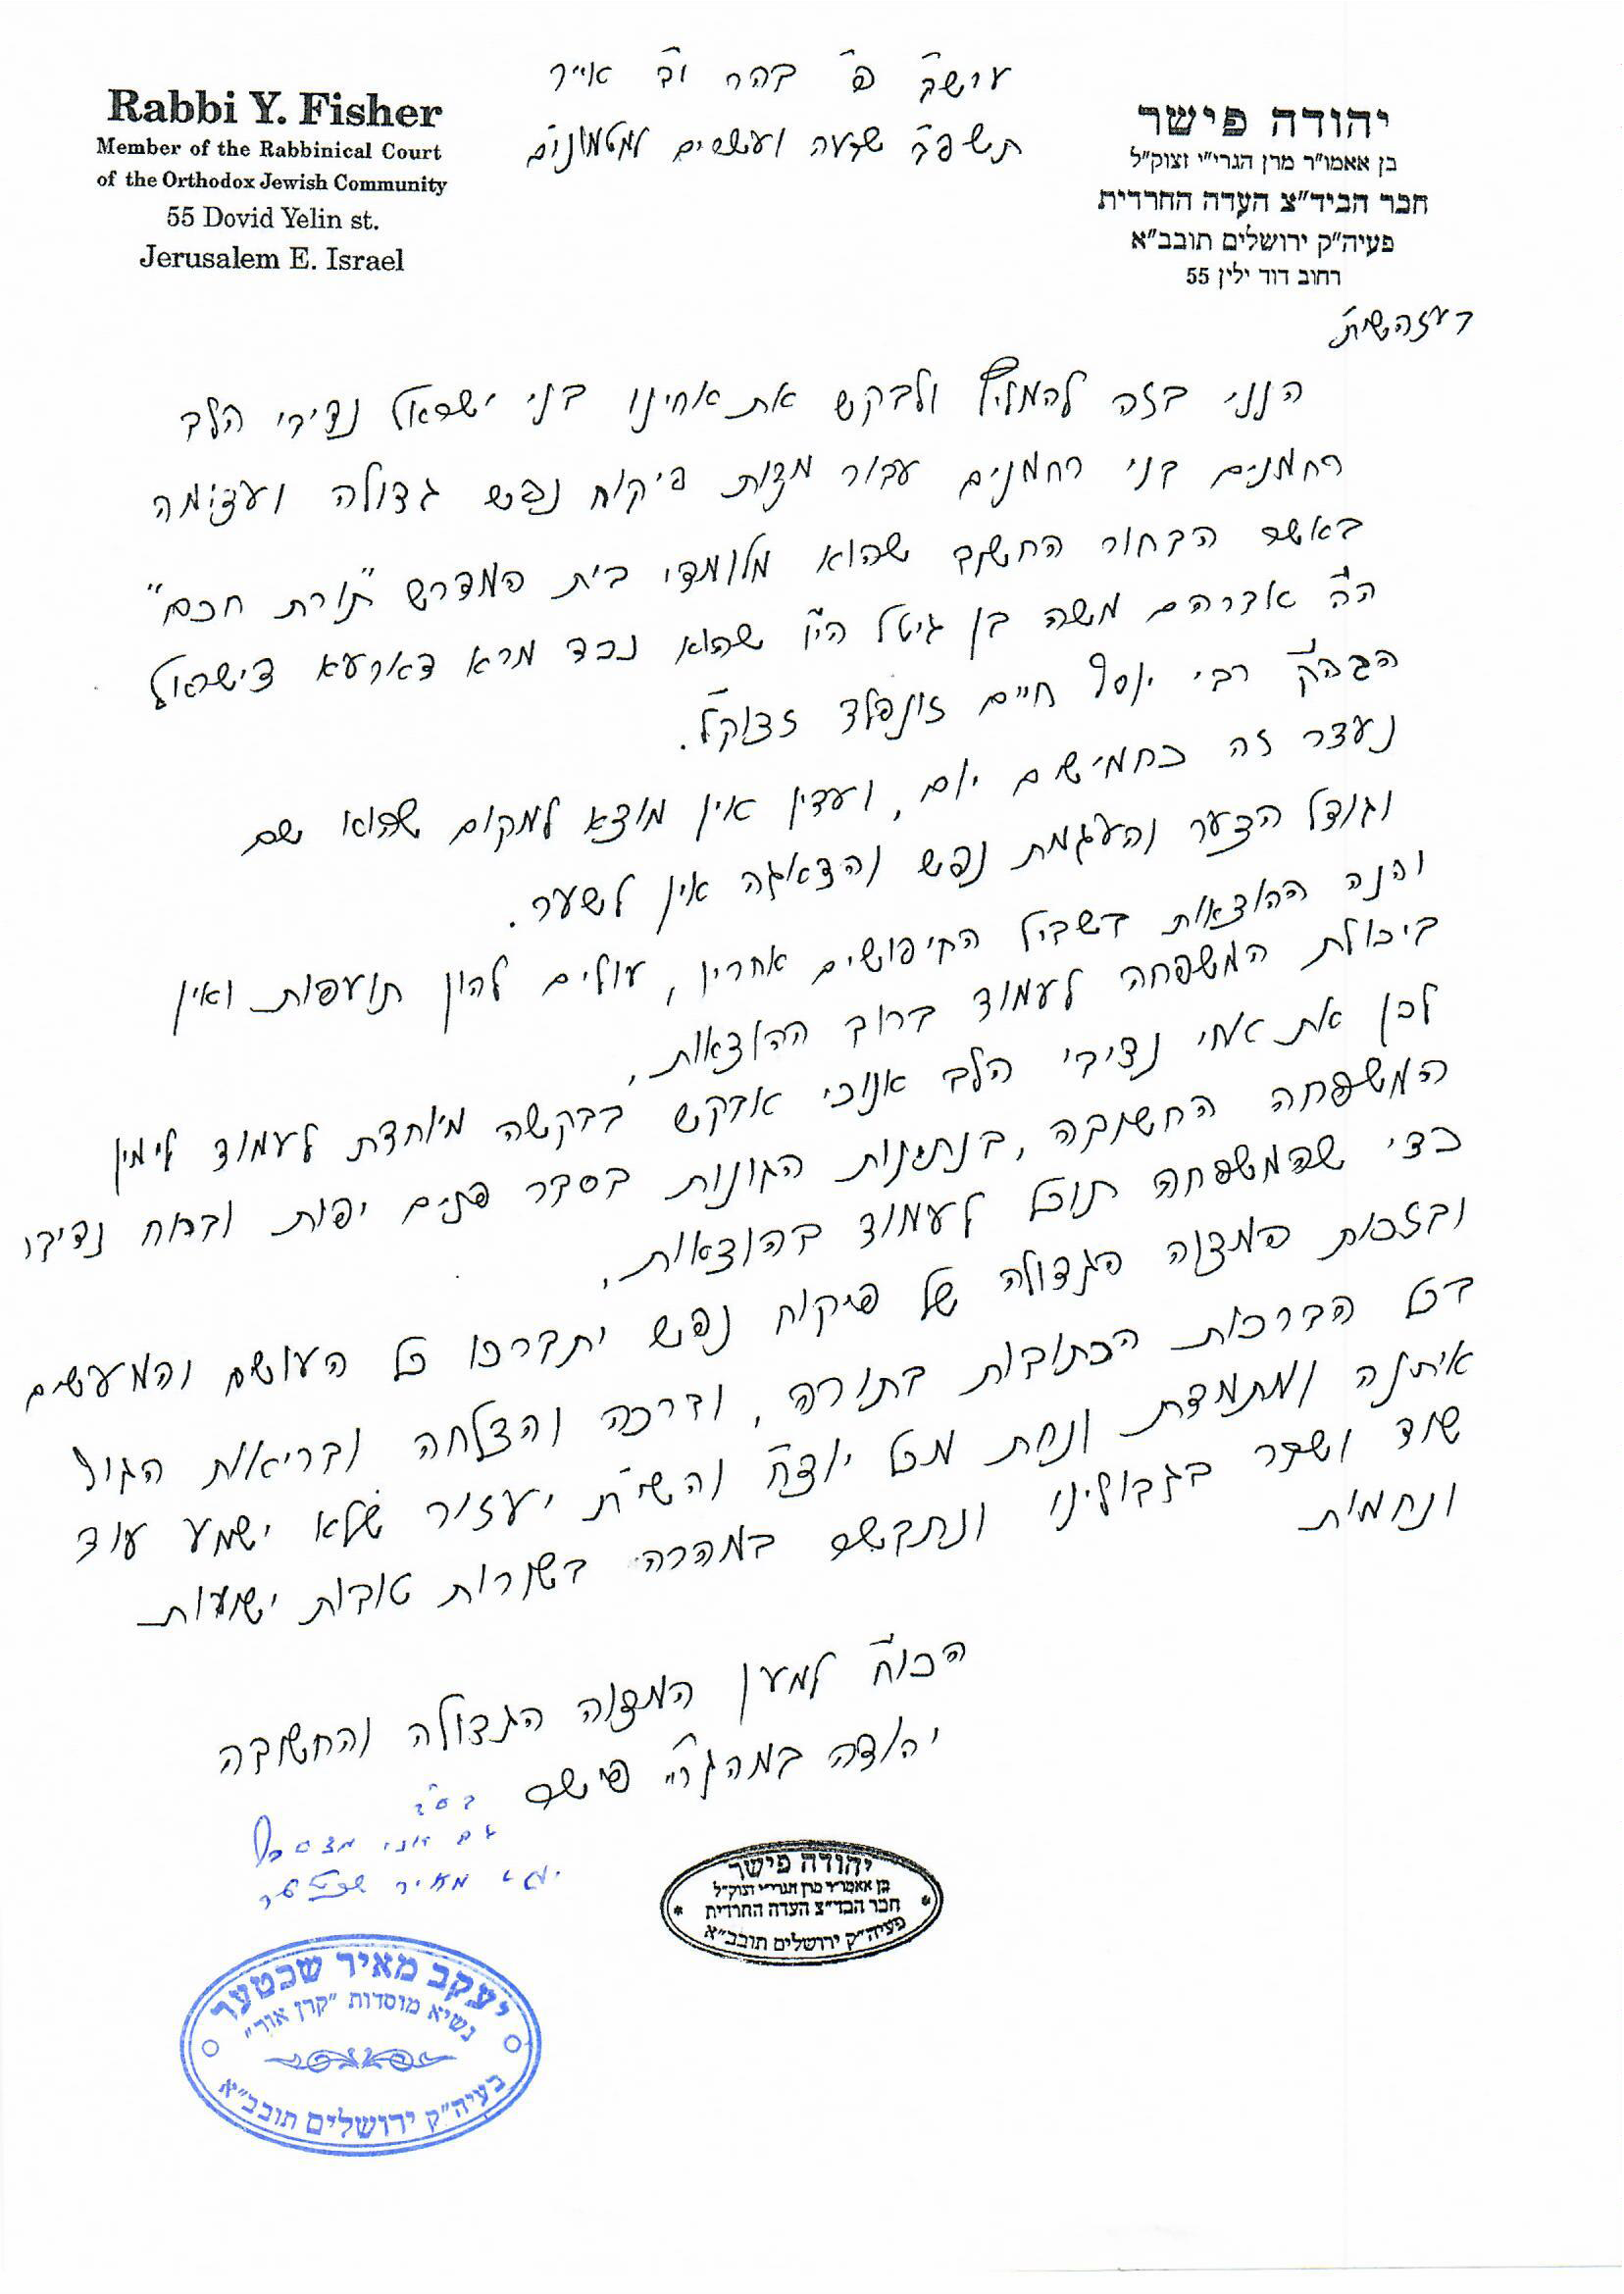 ערש"ק פ' בהר י"ב אייר
תשפ"ב שבעה ועשרים למטמונים
Rabbi Y. Fisher
Member of the Rabbinical Court
of the Orthodox Jewish Community
55 Dovid Yelin st.
Jerusalem E. Israel
יהודה פישר
בן אאמו"ר מרן הגרי"י זצוק"ל
חבר הביד"צ העדה החרדית
פעיה"ק ירושלים תובב"א
רחוב דוד ילין 55
בעזהשי"ת
הנני בזה להמליץ ולבקש את אחינו בני ישראל נדיבי הלב
רחמנים בני רחמנים עבור מצות פיקוח נפש גדולה ועצומה
באשר הבחור החשוב שהוא מלומדי בית המדרש "תורת חכם"
ה"ה אברהם משה בן גיטל הי"ו שהוא נכד מרא דארעא דישראל
הגה"ק רבי יוסף חיים זונפלד זצוק"ל.
נעצר זה כחמישים יום, ועדין אין מוצא למקום שהוא שם
וגודל הצער והעגמת נפש והדאגה אין לשער.
והנה ההוצאות בשביל החיפושים אחריו, עולים להון תועפות ואין
ביכולת המשפחה לעמוד ברוב ההוצאות,
לכן את אחי נדיבי הלב אנוכי אבקש בבקשה מיוחדת לעמוד לימין
המשפחה החשובה, בנתינות הגונות בסבר פנים יפות וברוח נדיבה
כדי שהמשפחה תוכל לעמוד בהוצאות,
ובזכות המצוה הגדולה של פיקוח נפש יתברכו כל העושים והמעשים
בכל הברכות הכתובות בתורה, וברכה והצלחה ובריאות הגוף
איתנה ומתמדת ונחת מכל יוצ"ח והשי"ת יעזור שלא ישמע עוד
שוד ושבר בגבולינו ונתבשר במהרה בשורות טובות ישועות
ונחמות
הכו"ח למען המצוה הגדולה והחשובה
יהודה במהגר"י פישר
בס"ד
גם אני מצטרף
יעקב מאיר שכטער
יהודה פישר
בן אאמו"ר מרן הגרי"י זצוק"ל
חבר הבד"צ העדה החרדית
פעיה"ק ירושלים תובב"א
יעקב מאיר שכטער
נשיא מוסדות "קרן אור"
בעיה"ק ירושלים תובב"א